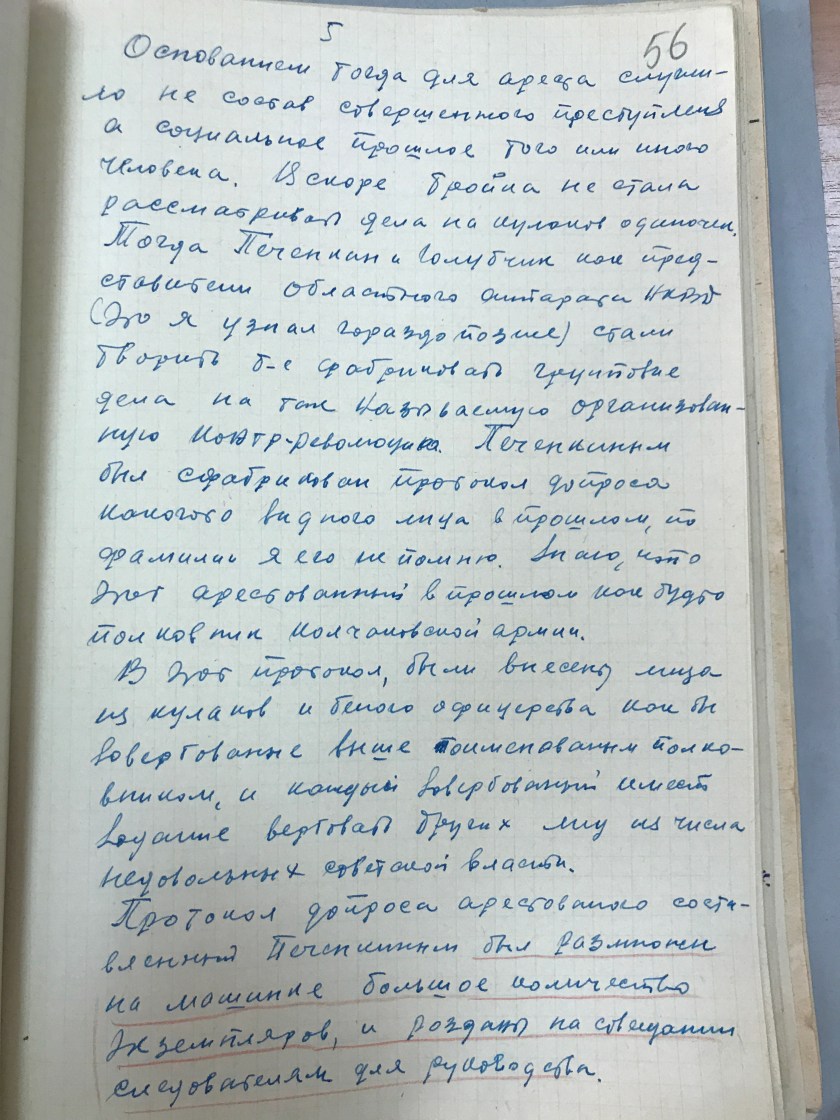 5
56
Основанием тогда для ареста служи-
ло не состав совершенного преступления
а социальное прошлое того или иного
человека. Вскоре тройка не стала
рассматривать дела на кулаков одиночек.
Тогда Печенкин и Голубчик как пред-
ставители областного аппарата НКВД
(Это я узнал гораздо позже) стали
творить т-е фабриковать групповые
дела на так называемую организован-
ную контр-революцию. Печенкиным
был сфабрикован протокол допроса
какогото видного лица в прошлом, по
фамилии я его не помню. Знаю, что
этот арестованный в прошлом как будто
полковник Колчаковской армии.
В этот протокол, были внесены лица
из кулаков и белого офицерства как бы
завербованные выше поименованным полко-
вником, и каждый завербованный имеет
задание вербовать других лиц из числа
недовольных советской власти.
Протокол допроса арестованого соста-
вленный Печенкиным был размножен
на машинке большое количество
экземпляров, и розданы на совещании
следователям для руководства.